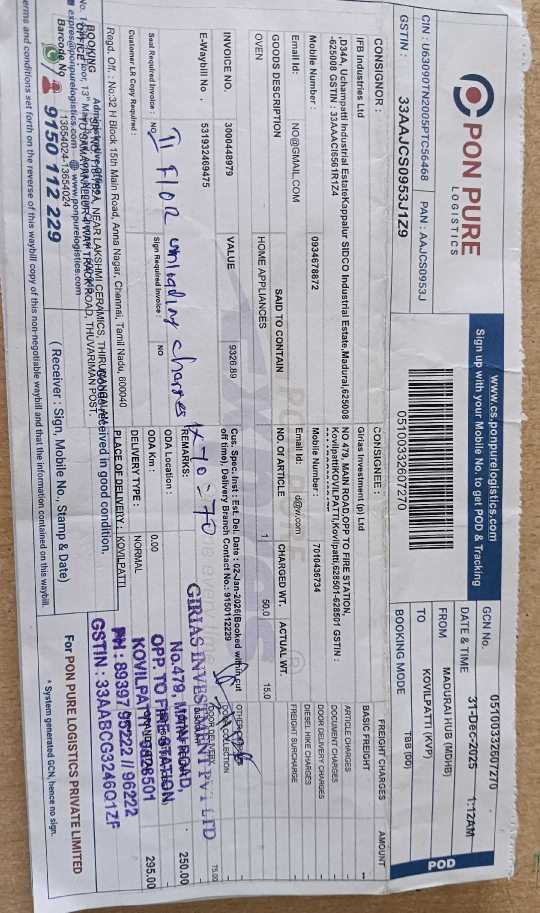 PON PURE
LOGISTICS
www.cs.ponpurelogistics.com
Sign up with your Mobile No. to get POD & Tracking
POD
CIN : U63090TN2005PTC56468 PAN : AAJCS0953J
GSTIN : 33AAJCS0953J1Z9
05100332607270
GCN No. 05100332607270
DATE & TIME 31-Dec-2025 1:12AM
FROM MADURAI HUB (MDHB)
TO KOVILPATTI (KVP)
BOOKING MODE TBB (DD)
CONSIGNOR :
IFB Industries Ltd
,D34A, Uchampatti Industrial EstateKappalur SIDCO Industrial Estate,Madurai,625008
-625008 GSTIN : 33AAACI6561R1Z4
Mobile Number : 0934678872
Email Id: NO@GMAIL.COM
CONSIGNEE :
Girias Investment (p) Ltd
NO 479, MAIN ROAD,OPP TO FIRE STATION,
KovilpattiKOVILPATTI,Kovilpatti,628501-628501 GSTIN :
Mobile Number : 7010436734
Email Id: d@w.com
FREIGHT CHARGES AMOUNT
BASIC FREIGHT --
ARTICLE CHARGES
DOCUMENT CHARGES
DOOR DELIVERY CHARGES
DIESEL HIKE CHARGES
FREIGHT SURCHARGE
GOODS DESCRIPTION SAID TO CONTAIN NO. OF ARTICLE CHARGED WT. ACTUAL WT.
OVEN HOME APPLIANCES 1 50.0 15.0
INVOICE NO. 3000418979 VALUE 9326.89
E-Waybill No . 531932469475
Cus. Spec. Inst : Est. Del. Date : 02-Jan-2026(Booked within cut
off time), Delivery Branch Contact No : 9150112229
DOOR COLLECTION
DOOR DELIVERY 75.00
250.00
295.00
REMARKS:
II FlOR unloading charges 1x70=70
Seal Required Invoice : NO Sign Required Invoice : NO
Customer LR Copy Required :
ODA Location :
ODA Km : 0.00
DELIVERY TYPE : NORMAL
PLACE OF DELIVERY : KOVILPATTI
GIRIAS INVESTMENT PVT LTD
No.479, MAIN ROAD,
OPP TO FIRE STATION
KOVILPATTI - 628501
PH : 89397 95222 // 96222
GSTIN : 33AABCG3246Q1ZF
Regd. Off. : No.32 H Block 15th Main Road, Anna Nagar, Chennai, Tamil Nadu, 600040
BOOKING
OFFICE
Barcode No : 13654024-13654024
9150 112 229
Goods received in good condition.
( Receiver : Sign, Mobile No., Stamp & Date)
For PON PURE LOGISTICS PRIVATE LIMITED
* System generated GCN, hence no sign.
erms and conditions set forth on the reverse of this waybill copy of this non-negotiable waybill and that the information contained on this waybill.